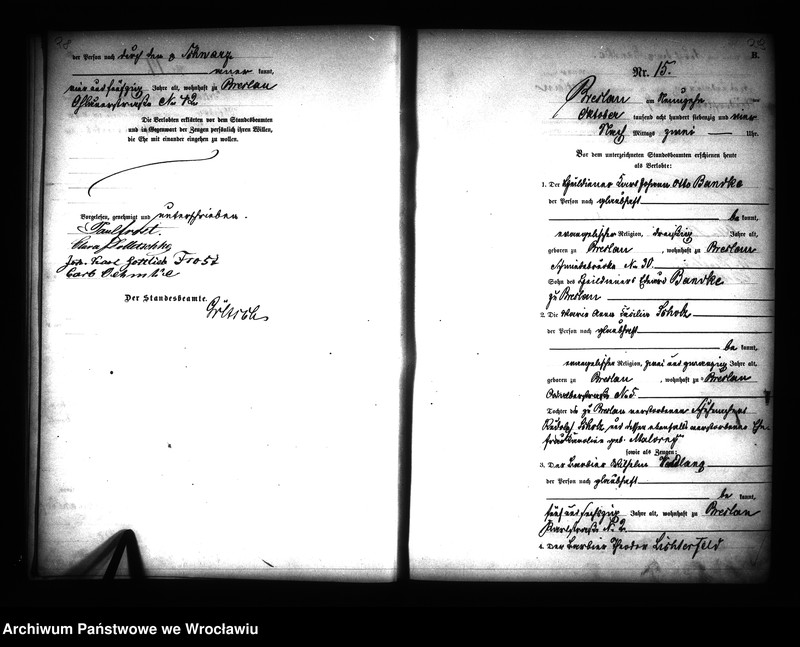 28
der Person nach durch den p Schwarz
kannt,
vier und fünfzig Jahre alt, wohnhaft zu Breslau
Ohlauerstraße No 42
Die Verlobten erklärten vor dem Standesbeamten
und in Gegenwart der Zeugen persönlich ihren Willen,
die Ehe mit einander eingehen zu wollen.
Vorgelesen, genehmigt und unterschrieben.
Paul
Clara
Joh. Karl Gottlieb Frost
Carl Oehmke
Der Standesbeamte.
B.
Nr. 15.
Breslau am Neunzehn
Oktober tausend acht hundert siebenzig und vier
Nach Mittags zwei Uhr.
Vor dem unterzeichneten Standesbeamten erschienen heute
als Verlobte:
1. Der Haushälter Karl Johann Otto Bandke
der Person nach glaubhaft
be kannt,
evangelischer Religion, dreißig Jahre alt,
geboren zu Breslau, wohnhaft zu Breslau
Schmiedebrücke No 30.
Sohn des Eduard Bandke
zu Breslau
2. Die Maria Anna Cäcilie Scholz
der Person nach glaubhaft
be kannt,
evangelischer Religion, zwei und zwanzig Jahre alt,
geboren zu Breslau, wohnhaft zu Breslau
No 5.
Tochter des zu Breslau verstorbenen Schuhmachers
Rudolf Scholz, und dessen ebenfalls verstorbenen Ehe
frau Karoline geb.
sowie als Zeugen:
3. Der Barbier Wilhelm
der Person nach glaubhaft
be kannt,
fünf und sechszig Jahre alt, wohnhaft zu Breslau
Karlstraße No 2
4. Der Barbier Theodor Lichterfeld
Archiwum Państwowe we Wrocławiu